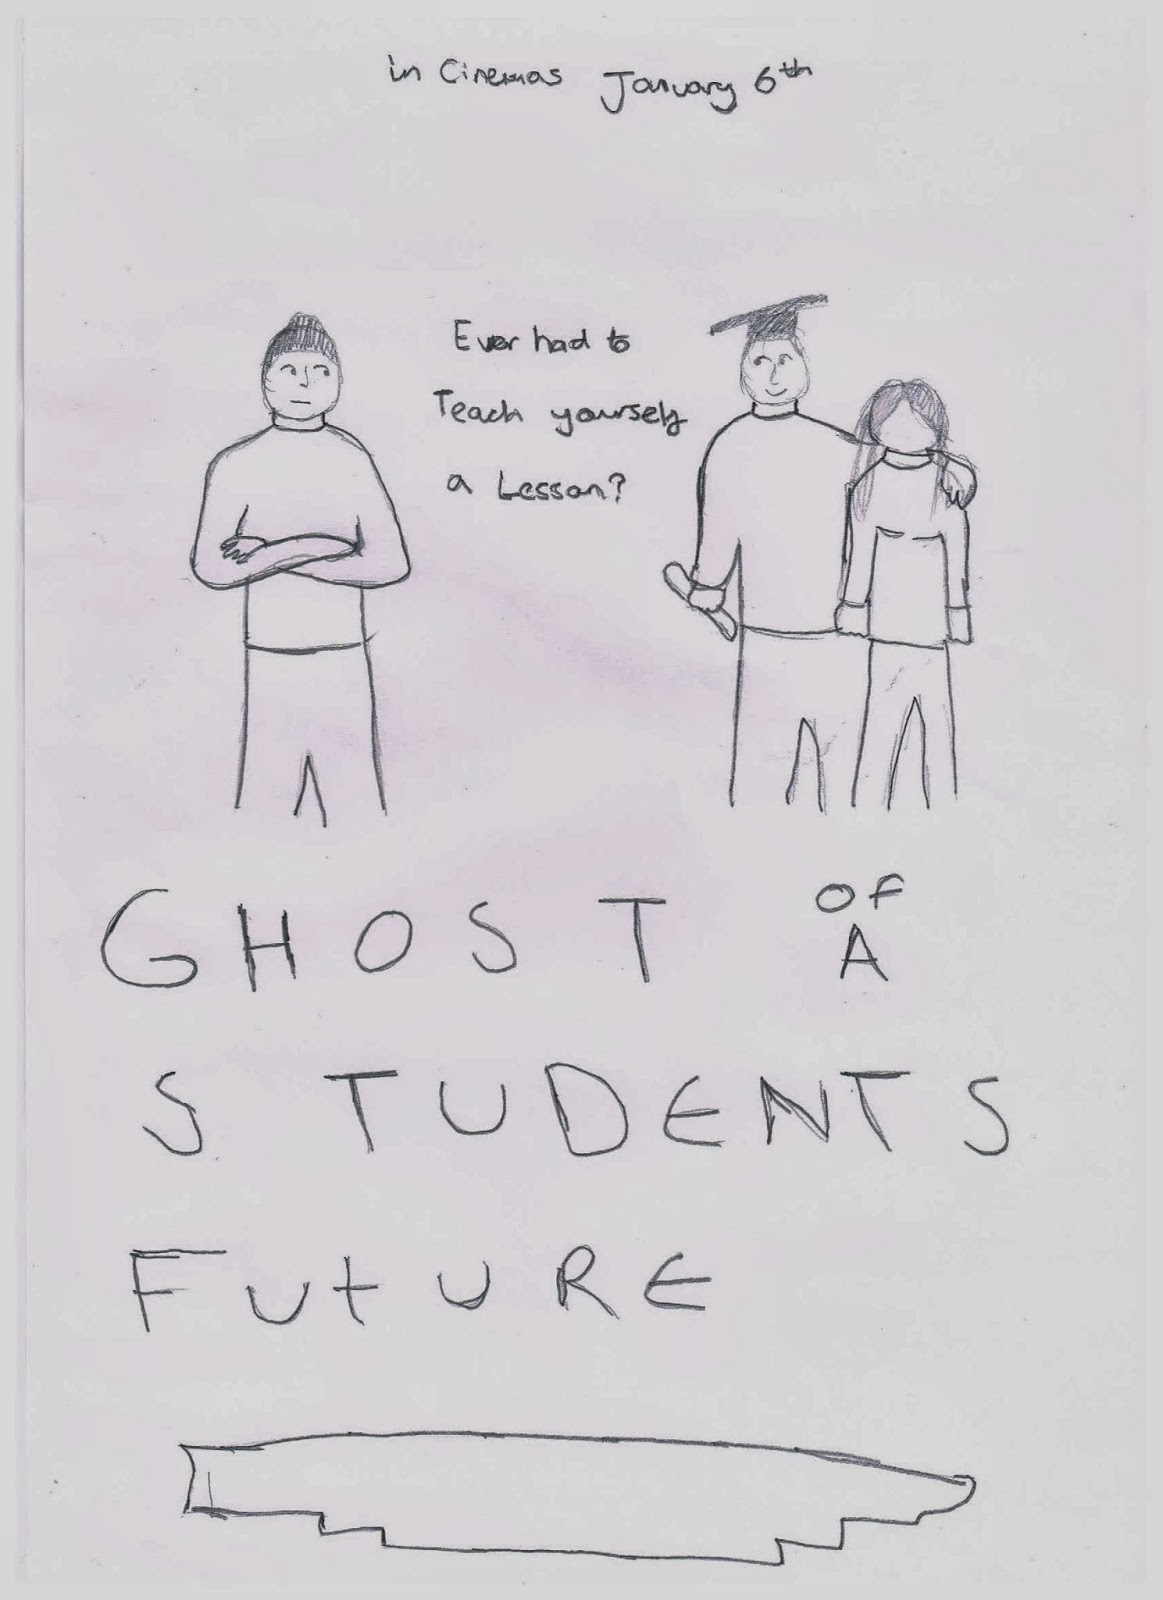 in Cinemas January 6th
Ever had to
Teach yourself
a Lesson?
GHOST OF A
STUDENTS
FUtURE